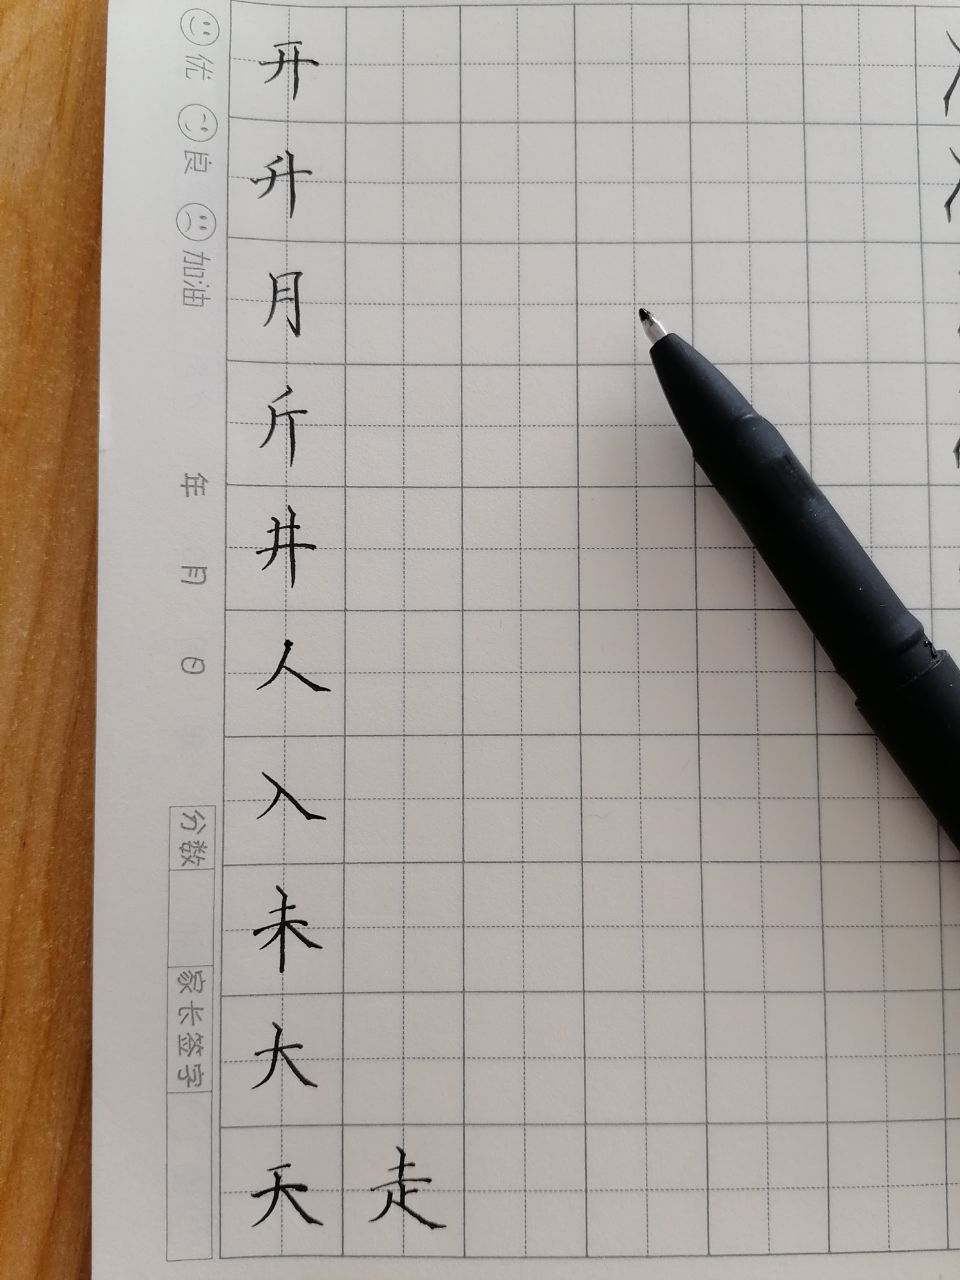 优 良 加油 年 月 日 分数 家长签字
开
升
月
斤
井
人
入
未
大
天 走